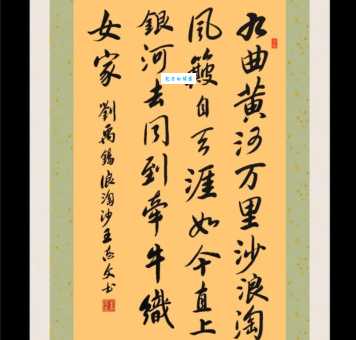 九曲黄河万里沙浪淘
風簸自天涯如今直上
銀河去同到牽牛織
女家
劉禹錫浪淘沙王志文书